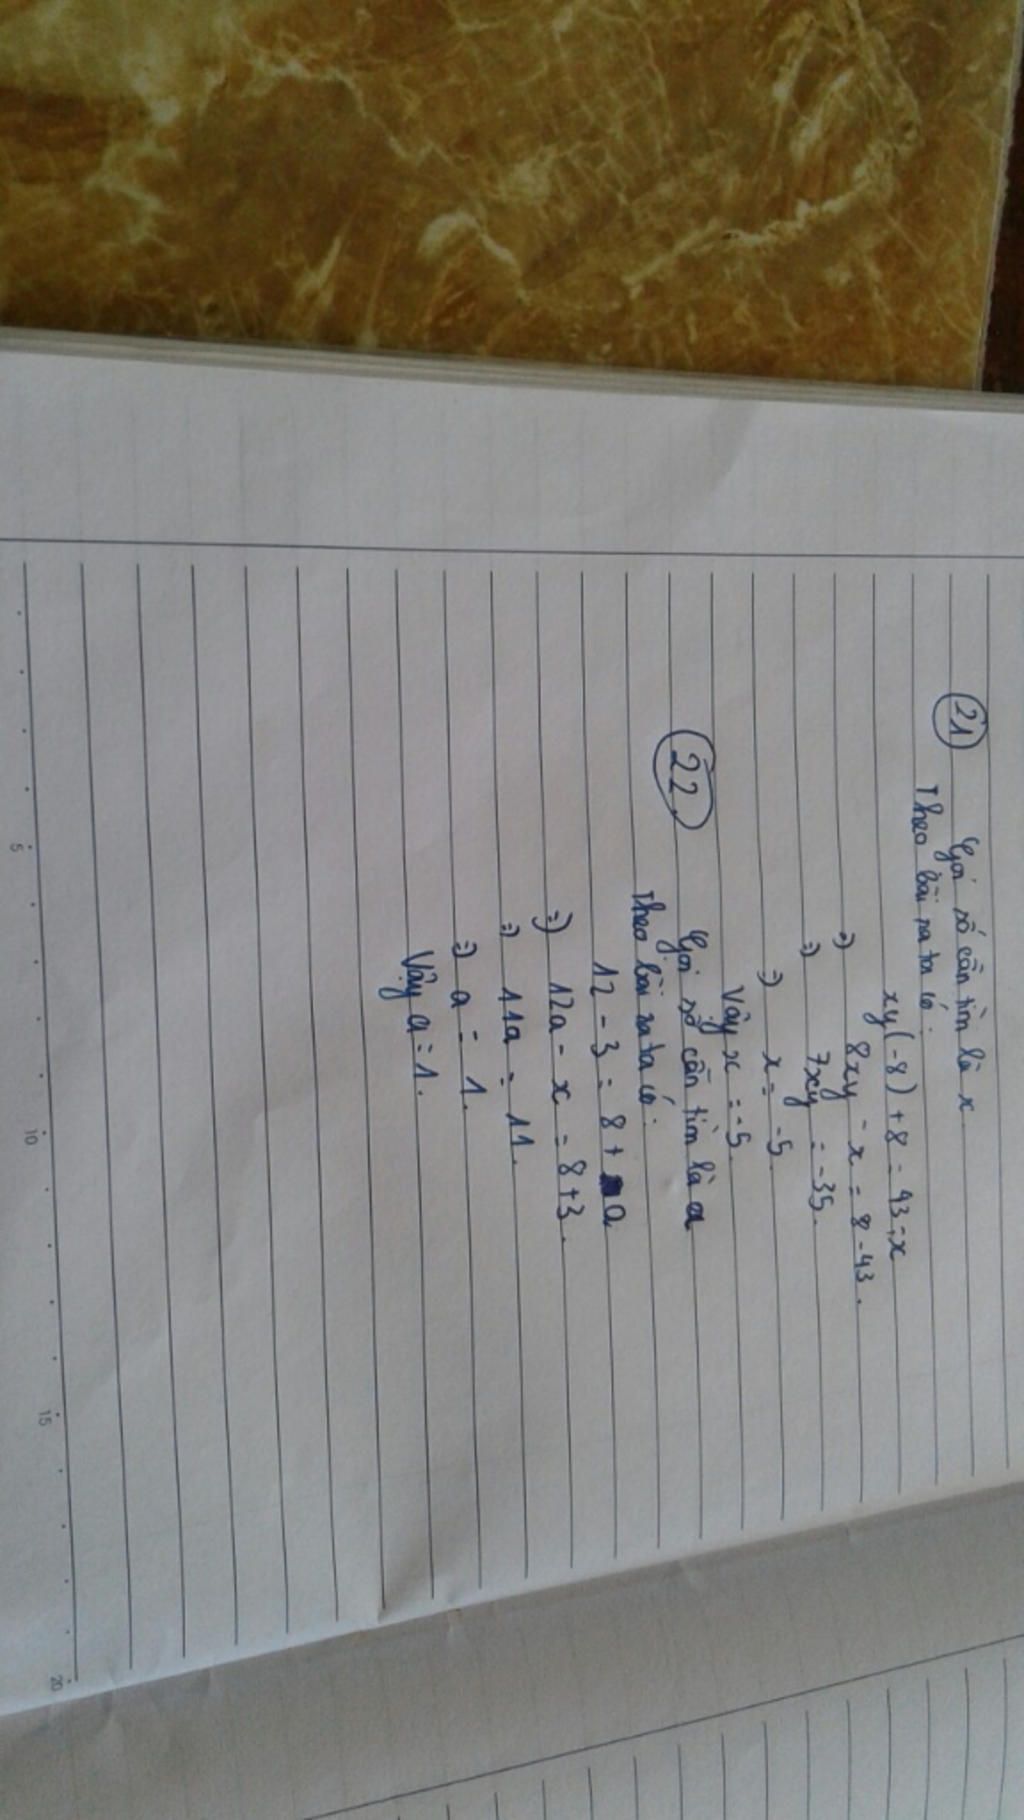 21 Gọi số cần tìm là x
Theo bài ra ta có:
xy(-8) + 8 = 43 - x
=) 8xy - x = 8 - 43.
=) 7xy = -35.
=) x = -5
Vậy x = -5.
22. Gọi số cần tìm là a
Theo bài ra ta có:
12 - 3 = 8 + a
=) 12a - x = 8 + 3.
=) 11a = 11.
=) a = 1.
Vậy a = 1.
5 10 15 20